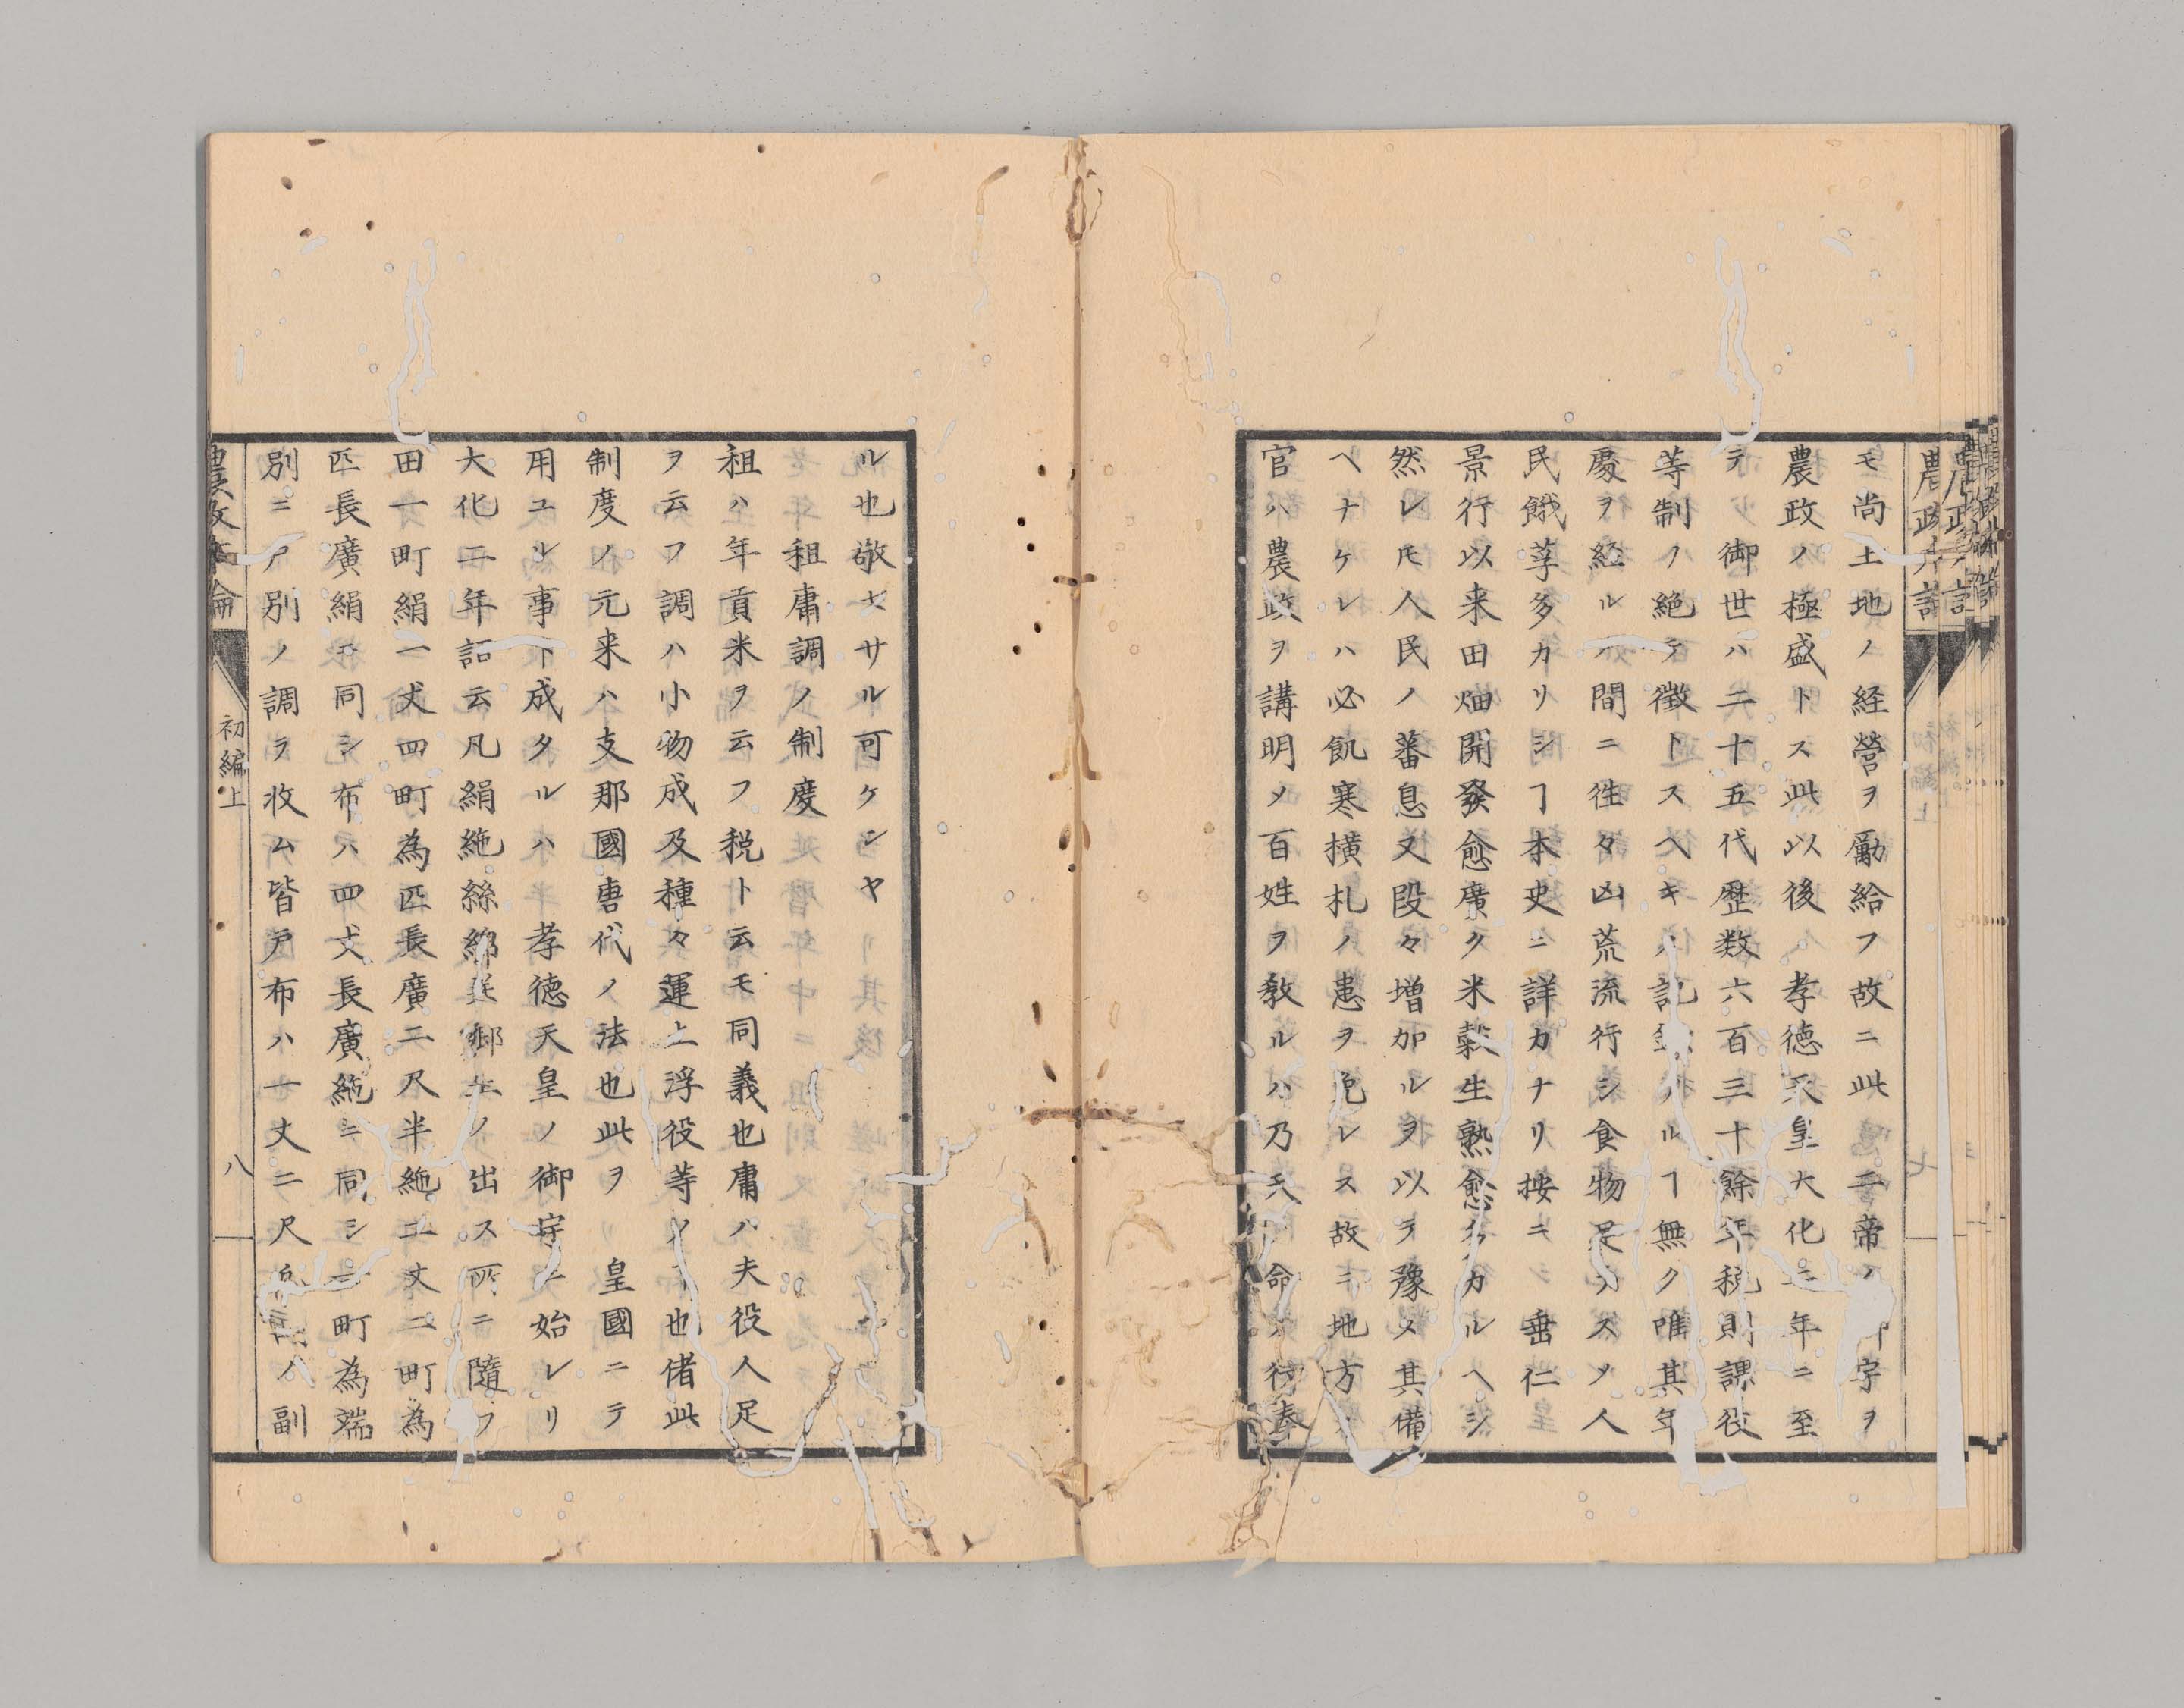 モ尚土地ノ経營ヲ勵給フ故ニ此二帝ノ御字ヲ
農政ノ極盛トス此以後孝徳天皇大化二年ニ至
テ御世ハ二十五代歴数六百三十餘年税則課役
等制ノ絶テ徴トスヘキノ記録ナルヿ無ク唯其年
處ヲ経ルノ間ニ徃々凶荒流行シ食物足ラスメ人
民餓莩多カリシヿ本史ニ詳カナリ按ニ垂仁
景行以来田畑開發愈廣ク米穀生熟愈多カルヘシ
然レ𪜈人民ノ蕃息又段々増加ルヲ以テ豫メ其備
ヘナケレハ必飢寒横札ノ患ヲ免レス故ニ地方
官ハ農政ヲ講明メ百姓ヲ教ルハ乃天命ヲ奉
ル也敬セサル可ケンヤ
租庸調ノ制度
祖ハ年貢米ヲ云フ税ト云モ同義也庸ハ夫役人足
ヲ云フ調ハ小物成及種々運上浮役等ノ也偖此
制度ノ元来ハ支那國唐代ノ法也此ヲ皇國ニテ
用ユル事ト成タルハ孝徳天皇ノ御宇ニ始レリ
大化二年詔云凡絹絁絲綿並郷土ノ出ス所ニ隨フ
田一町絹一丈四町為匹長廣二尺半絁二丈二町為
匹長廣絹ニ同シ布ハ四丈長廣絁ニ同シ一町為端
別ニ戸別ノ調ヲ收ム皆戸布ハ一丈二尺凡調ノ副
農政本論
初編上
八